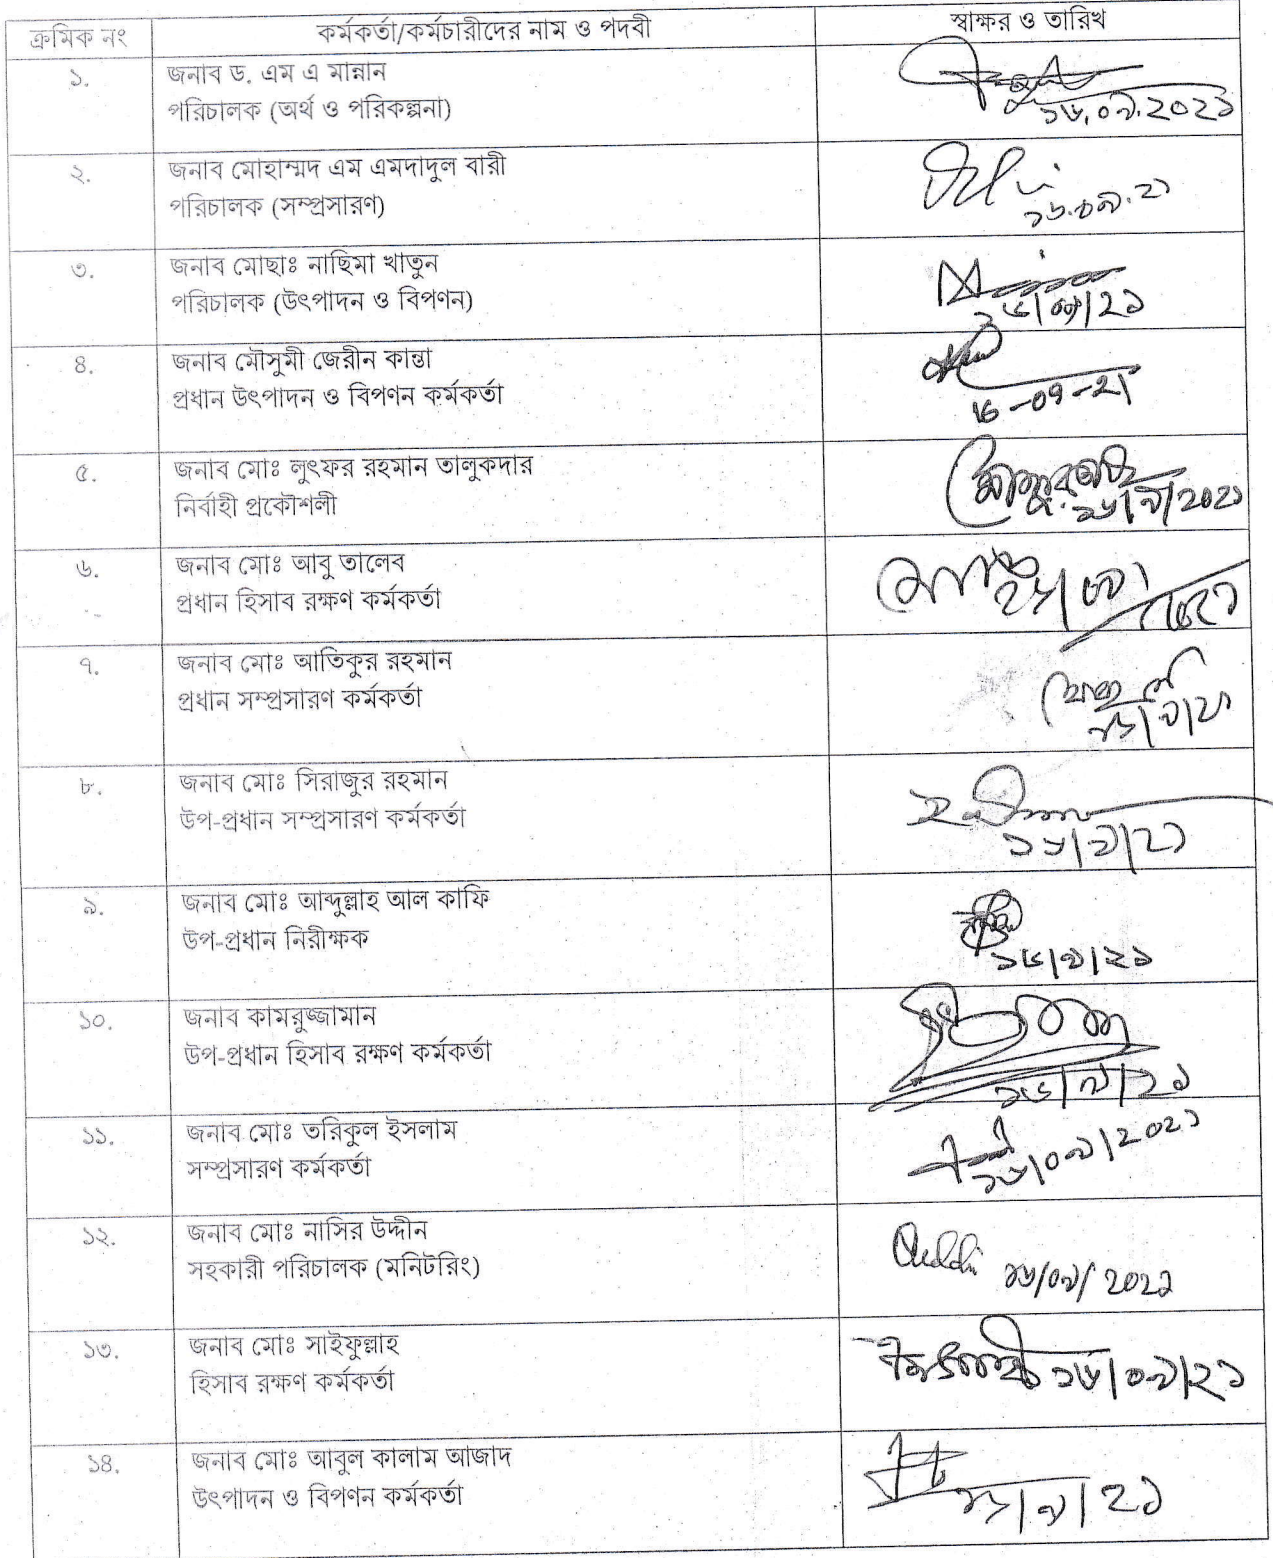 ক্রমিক নং কর্মকর্তা/কর্মচারীদের নাম ও পদবী স্বাক্ষর ও তারিখ
১. জনাব ড. এম এ মান্নান
পরিচালক (অর্থ ও পরিকল্পনা) ১৬.০৯.২০২১
২. জনাব মোহাম্মদ এম এমদাদুল বারী
পরিচালক (সম্প্রসারণ) ১৬.০৯.২১
৩. জনাব মোছাঃ নাছিমা খাতুন
পরিচালক (উৎপাদন ও বিপণন) ১৬/০৯/২১
৪. জনাব মৌসুমী জেরীন কান্তা
প্রধান উৎপাদন ও বিপণন কর্মকর্তা 16-09-21
৫. জনাব মোঃ লুৎফর রহমান তালুকদার
নির্বাহী প্রকৌশলী ১৬/৯/২০২১
৬. জনাব মোঃ আবু তালেব
প্রধান হিসাব রক্ষণ কর্মকর্তা
৭. জনাব মোঃ আতিকুর রহমান
প্রধান সম্প্রসারণ কর্মকর্তা ১৬/৯/২১
৮. জনাব মোঃ সিরাজুর রহমান
উপ-প্রধান সম্প্রসারণ কর্মকর্তা ১৬/৯/২১
৯. জনাব মোঃ আব্দুল্লাহ আল কাফি
উপ-প্রধান নিরীক্ষক ১৬/৯/২১
১০. জনাব কামরুজ্জামান
উপ-প্রধান হিসাব রক্ষণ কর্মকর্তা ১৬/৯/২১
১১. জনাব মোঃ তরিকুল ইসলাম
সম্প্রসারণ কর্মকর্তা ১৬/০৯/২০২১
১২. জনাব মোঃ নাসির উদ্দীন
সহকারী পরিচালক (মনিটরিং) ১৬/০৯/২০২১
১৩. জনাব মোঃ সাইফুল্লাহ
হিসাব রক্ষণ কর্মকর্তা ১৬/০৯/২১
১৪. জনাব মোঃ আবুল কালাম আজাদ
উৎপাদন ও বিপণন কর্মকর্তা ১৬/৯/২১